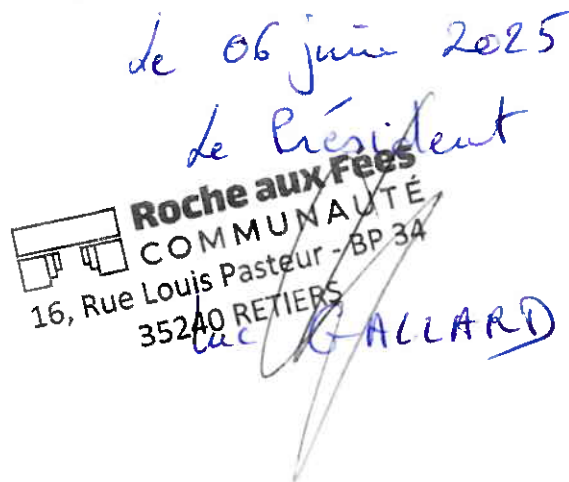 Le 06 juin 2025
Le Président
Roche aux Fées
COMMUNAUTÉ
16, Rue Louis Pasteur - BP 34
35240 RETIERS
Luc GALLARD